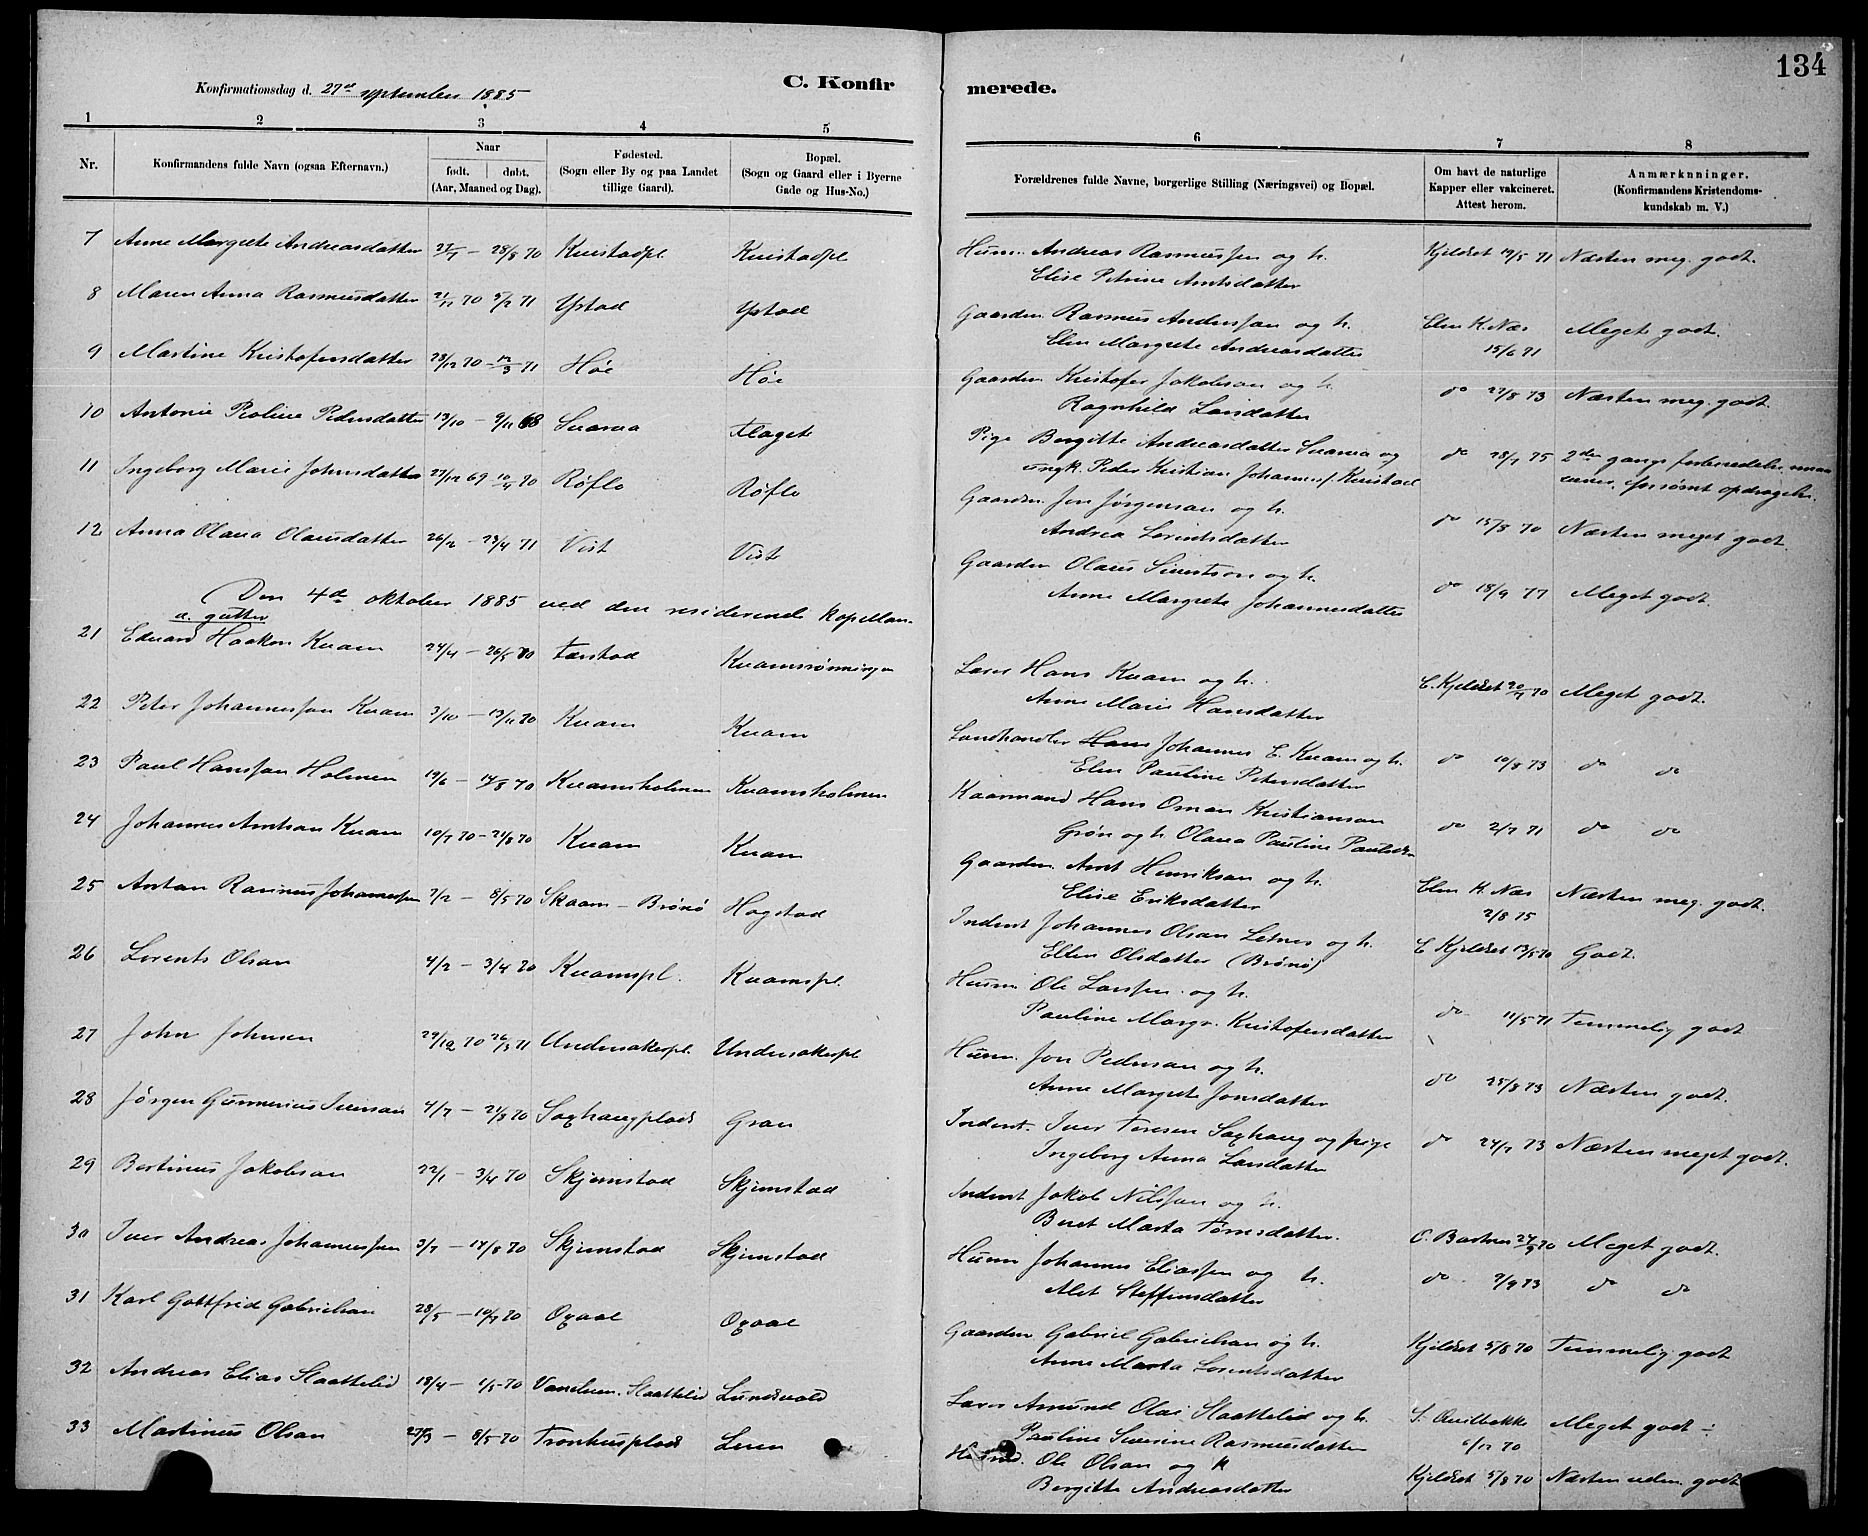 134
Konfirmationsdag d. 27de september 1885
C. Konfirmerede.
1 2 3 4 5 6 7 8
Nr.
Konfirmandens fulde Navn (ogsaa Efternavn.)
Naar
født. døbt.
(Aar, Maaned og Dag).
Fødested.
(Sogn eller By og paa Landet
tillige Gaard).
Bopæl.
(Sogn og Gaard eller i Byerne
Gade og Hus-No.)
Forældrenes fulde Navne, borgerlige Stilling (Næringsvei) og Bopæl.
Om havt de naturlige
Kapper eller vakcineret.
Attest herom.
Anmærkninger.
(Konfirmandens Kristendoms-
kundskab m. V.)
7 Anne Margrete Andreasdatter 27/7 - 28/8 70 Kvistadpl Kvistadpl
Husm. Andreas Rasmussen og h. Kjeldset 19/5 71 Næsten meg. godt.
Elise Petrine Arntsdatter
8 Maren Anna Rasmusdatter 21/12 70 5/2 71 Ystad Ystad
Gaardm. Rasmus Anderssen og h. Elen K. Næs Meget godt.
Elen Margrete Andreasdatter 15/6 71
9 Martine Kristofersdatter 28/12 70 - 12/3 71 Høe Høe
Gaardm. Kristofer Jakobsen og h. do 27/8 73 Næsten meg. godt.
Ragnhild Larsdatter
10 Antonie Roline Pedersdatter 13/10 - 9/11 68 Svarva Flagete
Pige Bergitte Andreasdatter Svarva og do 28/7 75 2den gangs forberedelse,
ungk. Peder Kristian Johannes. Kvistad forsømt opdragelse.
11 Ingeborg Marie Johnsdatter 27/12 69 10/4 70 Røflo Røflo
Gaardm. Jon Jørgensen og h. do 15/8 70 Næsten meget godt.
Andrea Lorintsdatter
12 Anna Olava Olausdatter 26/2 - 23/4 71 Vist Vist
Gaardm. Olaus Sivertsen og h. do 18/9 77 Meget godt.
Anne Margrete Johannesdatter
Den 4de oktober 1885 ved den residerende kapellan.
a. gutter
21 Edvard Haakon Kvam 24/4 - 26/5 70 Færstad Kvamsrønningen
Lærer Hans Kvam og h. E. Kjeldset 20/7 70 Meget godt.
Anne Marie Hansdatter
22 Peter Johannessen Kvam 3/10 - 13/11 70 Kvam Kvam
Landhandler Hans Johannes E. Kvam og h. do 10/8 73 do do
Elen Pauline Petersdatter
23 Paul Hanssen Holmen 19/6 - 14/8 70 Kvamsholmen Kvamsholmen
Kaarmand Hans Oman Kristiansen do 2/7 71 do do
Grøn og h. Olava Pauline Paulsdtr
24 Johannes Arntsen Kvam 10/7 70 - 21/8 70 Kvam Kvam
Gaardm. Arnt Henriksen og h. Elen K. Næs Næsten meg. godt.
Elise Eriksdatter 2/8 75
25 Anton Rasmus Johannessen 7/2 - 8/5 70 Skaam - Brønø Hagstad
Inderst Johannes Olsen Letnes og h. E Kjeldset 13/5 70 Godt.
Ellen Olsdatter (Brønø)
26 Lorents Olsen 4/2 - 3/4 70 Kvamspl. Kvamspl.
Husm. Ole Larssen og h. do 11/5 71 Temmelig godt
Pauline Margr. Kristofersdatter
27 John Johnsen 29/12 70 26/3 71 Undersakerpl. Undersakerpl
Husm. Jon Pedersen og h. do 25/8 73 Næsten godt.
Anne Margrete Jonsdatter
28 Jørgen Gunnerius Iversen 4/7 - 21/8 70 Saxhaugplads Gran
Inderst. Iver Toresen Saxhaug og pige do 24/7 73 Næsten meget godt.
Ingeborg Anna Larsdatter
29 Bertinus Jakobsen 22/1 - 3/4 70 Skjemstad Skjemstad
Inderst Jakob Nilssen og h. O. Bartnes 24/9 70 Meget godt.
Beret Marta Toresdatter.
30 Iver Andreas Johannessen 3/7 - 14/8 70 Skjemstad Skjemstad
Husm Johannes Eliassen og h. do 9/9 73 do do
Alet Steffensdatter
31 Karl Gottfried Gabrielsen 28/5 - 10/7 70 Oxaal Oxaal
Gaardm. Gabriel Gabrielsen og h. Kjeldset 5/8 70 Temmelig godt
Anne Marta Lorentsdatter
32 Andreas Elias Slaattelid 18/4 - 1/5 70 Vanelven. Slaattelid Lundsvald
Lærer Amund Olai Slaattelid og h. S. Qvilbakke Meget godt ÷
Pauline Severine Rasmusdatter 6/12 70
33 Martinus Olsen 27/3 - 8/5 70 Tronhusplads Leren
Husmd. Ole Olsen og h Kjeldset 5/8 70 Næsten uden. godt
Bergitte Andreasdatter